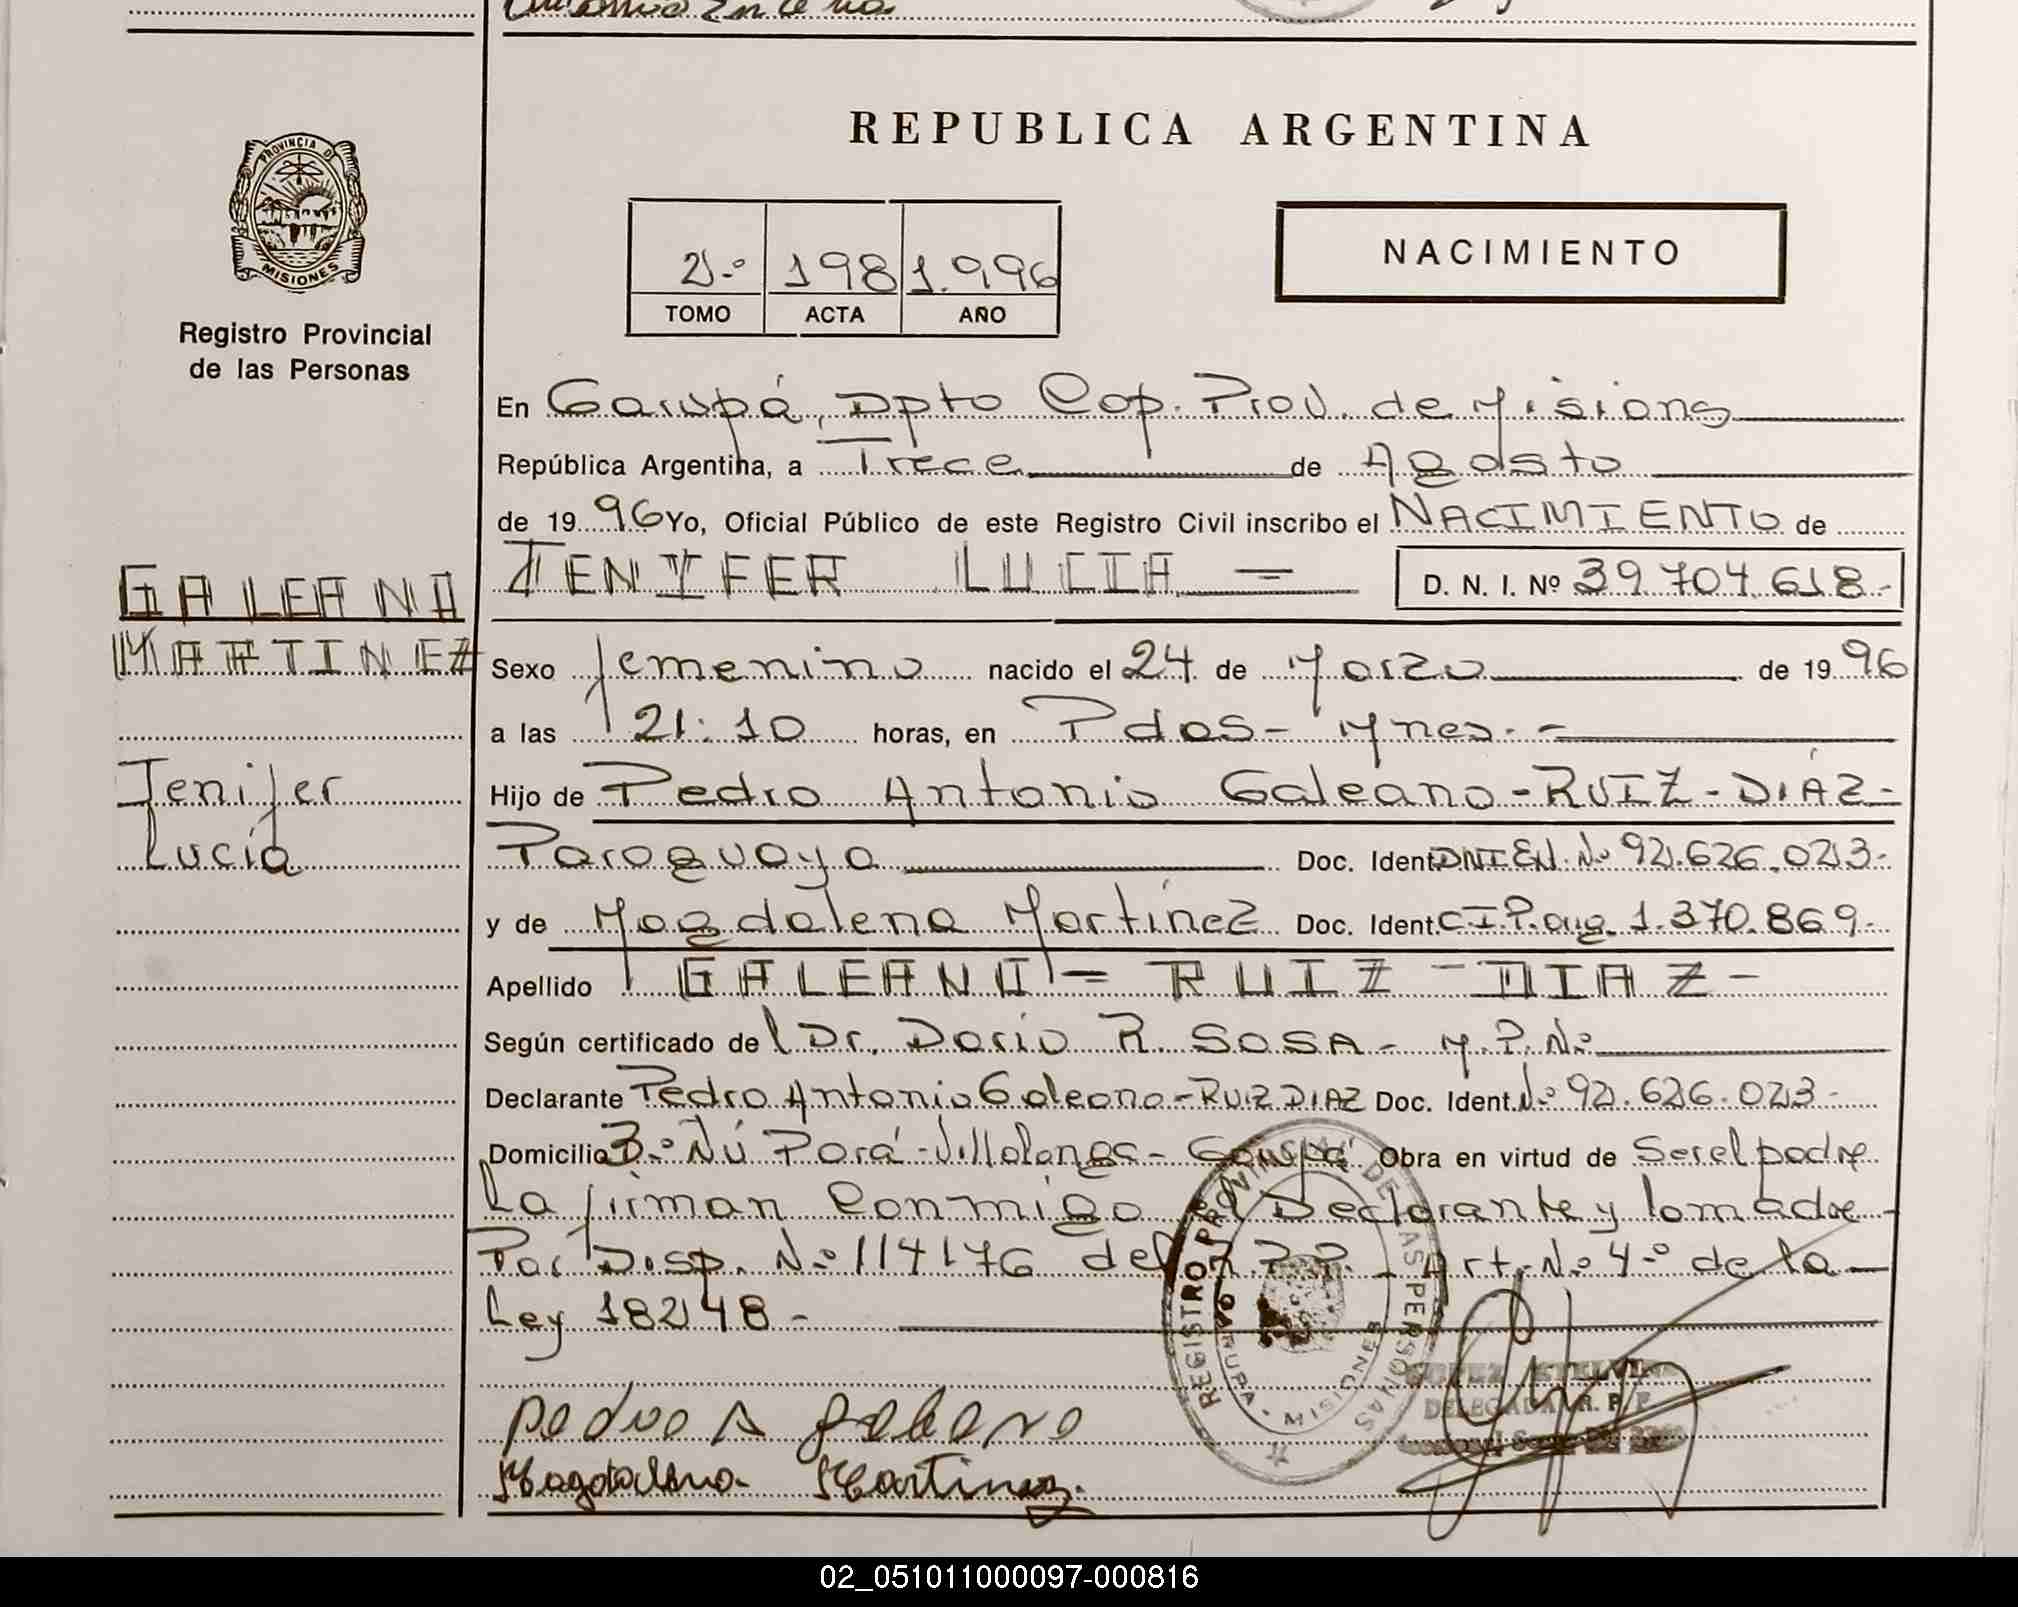 REPUBLICA ARGENTINA
PROVINCIA DE
MISIONES
Registro Provincial
de las Personas
2-º 198 1.996
TOMO ACTA AÑO
NACIMIENTO
En Garupá, Dpto Cap. Prov. de Misiones
República Argentina, a Trece de Agosto
de 1996 Yo, Oficial Público de este Registro Civil inscribo el NACIMIENTO de
JENIFER LUCIA = D. N. I. Nº 39.704.618.-
GALEANO
MARTINEZ
Jenifer
Lucía
Sexo femenino nacido el 24 de Marzo de 1996
a las 21:10 horas, en Pdas- Mnes.-
Hijo de Pedro Antonio Galeano-RUIZ-DIÁZ-
Paraguaya Doc. Ident. DNI EX. Nº 92.626.023-
y de Magdalena Martínez Doc. Ident. C.I.P.aug. 1.370.869-
Apellido GALEANO = RUIZ - DIAZ -
Según certificado de l Dr. Dario R. SOSA- M.P.Nº
Declarante Pedro Antonio Galeano-RUIZ DIAZ Doc. Ident. Nº 92.626.023-
Domicilio Bº Ñú Porá-Villalonga- Garupá Obra en virtud de Ser el padre
La firman Conmigo el Declarante y la madre-
Por Disp. Nº 114176 del R.P.P. - Art. Nº 4º de la
Ley 18248-
REGISTRO PROVINCIAL DE LAS PERSONAS
MISIONES
DELEGADA R. P. P.
Pedro A galeano
Magdalena Martinez
02_051011000097-000816